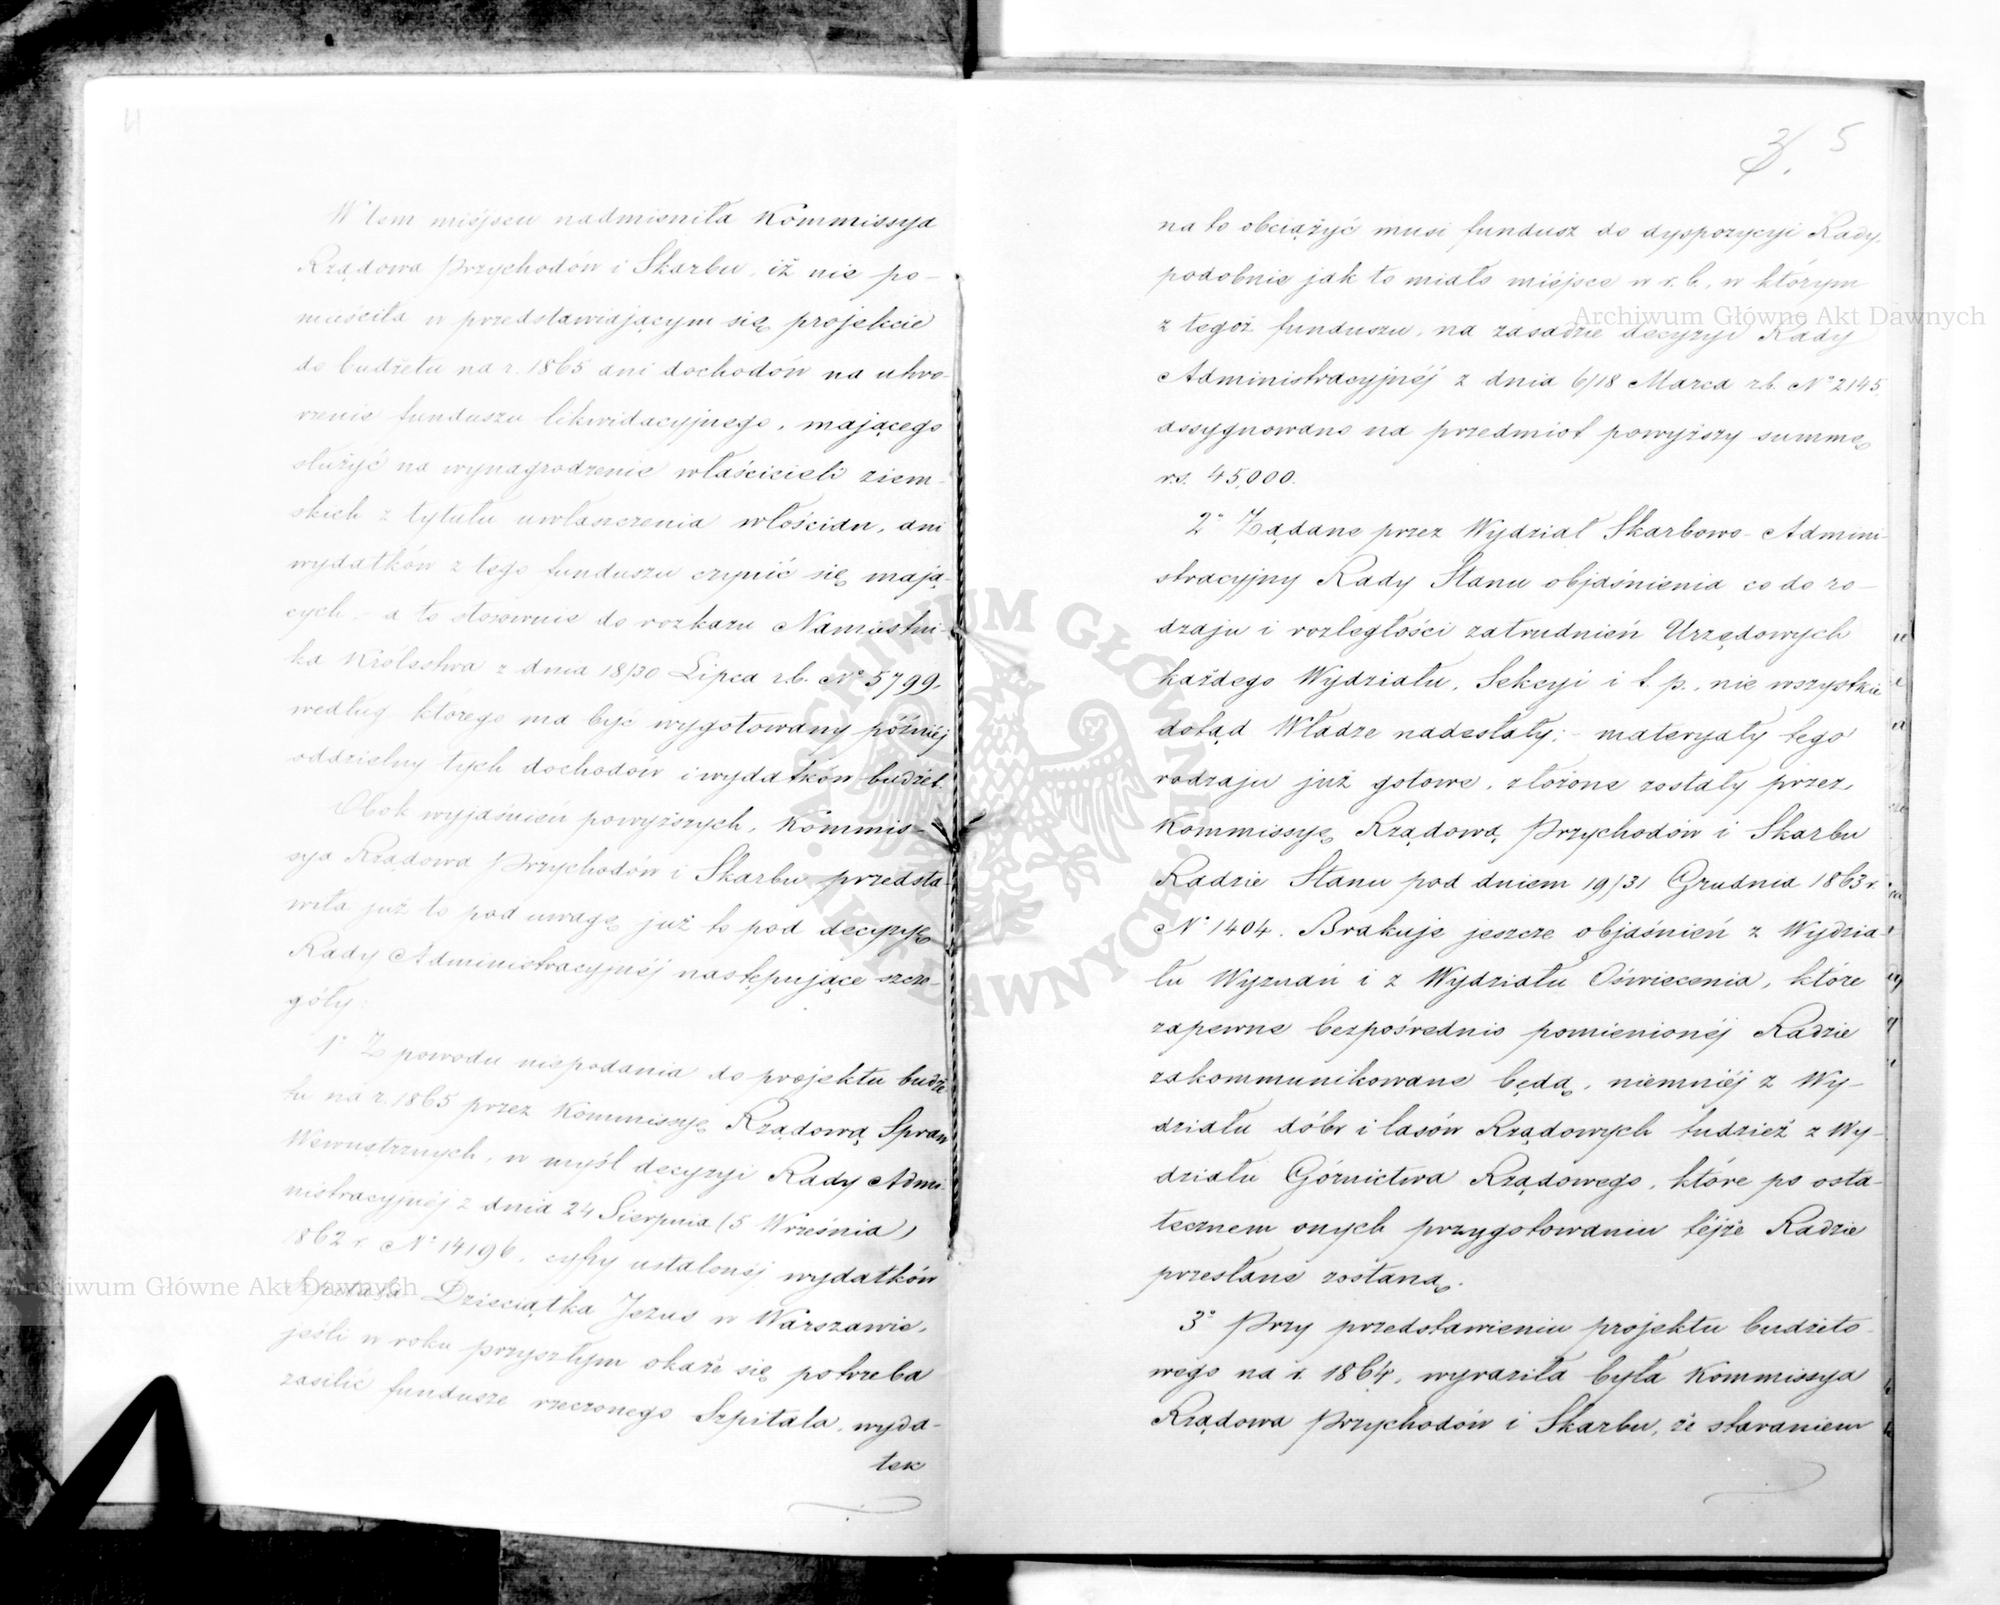 4
W tem miejscu nadmieniła Kommissya
Rządowa Przychodów i Skarbu, iż nie po-
mieściła w przedstawiającym się projekcie
do budżetu na r. 1865 ani dochodów na utwo-
rzenie funduszu likwidacyjnego, mającego
służyć na wynagrodzenie właścicieli ziem-
skich z tytułu uwłaszczenia włościan, ani
wydatków z tego funduszu czynić się mają-
cych, – a to stosownie do rozkazu Namiestni-
ka Królestwa z dnia 18/30 Lipca r.b. No 5799,
według którego ma być wygotowany później
oddzielny tych dochodów i wydatków budżet.
Obok wyjaśnień powyższych, Kommis-
sya Rządowa Przychodów i Skarbu przedsta-
wiła już to pod uwagę już to pod decyzyę
Rady Administracyjnéj następujące szcze-
góły:
1o Z powodu niepodania do projektu budże-
tu na r. 1865 przez Kommissyę Rządową Spraw
Wewnętrznych, w myśl decyzyi Rady Admi-
nistracyjnéj z dnia 24 Sierpnia (5 Września)
1862 r. No 14196, cyfry ustalonéj wydatków
Szpitala Dzieciątka Jezus w Warszawie,
jeśli w roku przyszłym okaże się potrzeba
zasilić fundusze rzeczonego Szpitala, wyda-
tek
3. 5
na to obciążyć musi fundusz do dyspozycyi Rady,
podobnie jak to miało miéjsce w r.b., w którym
z tegoż funduszu, na zasadzie decyzyi Rady
Administracyjnéj z dnia 6/18 Marca r.b. No 2145,
assygnowano na przedmiot powyższy summę
r.s. 45,000.
2o Żądane przez Wydział Skarbowo-Admini-
stracyjny Rady Stanu objaśnienia co do ro-
dzaju i rozległości zatrudnień Urzędowych
każdego Wydziału, Sekcyi i t.p., nie wszystkie
dotąd Władze nadesłały; – materyały tego
rodzaju już gotowe, złożone zostały przez
Kommissyę Rządową Przychodów i Skarbu
Radzie Stanu pod dniem 19/31 Grudnia 1863 r.
No 1404. Brakuje jeszcze objaśnień z Wydzia-
łu Wyznań i z Wydziału Oświecenia, które
zapewne bezpośrednio pomienionéj Radzie
zakommunikowane będą, niemniéj z Wy-
działu dóbr i lasów Rządowych tudzież z Wy-
działu Górnictwa Rządowego, które po osta-
tecznem onych przygotowaniu téjże Radzie
przesłane zostaną.
3o Przy przedstawieniu projektu budżeto-
wego na r. 1864, wyraziła była Kommissya
Rządowa Przychodów i Skarbu, że staraniem
Archiwum Główne Akt Dawnych
Archiwum Główne Akt Dawnych
ARCHIWUM GŁÓWNE AKT DAWNYCH